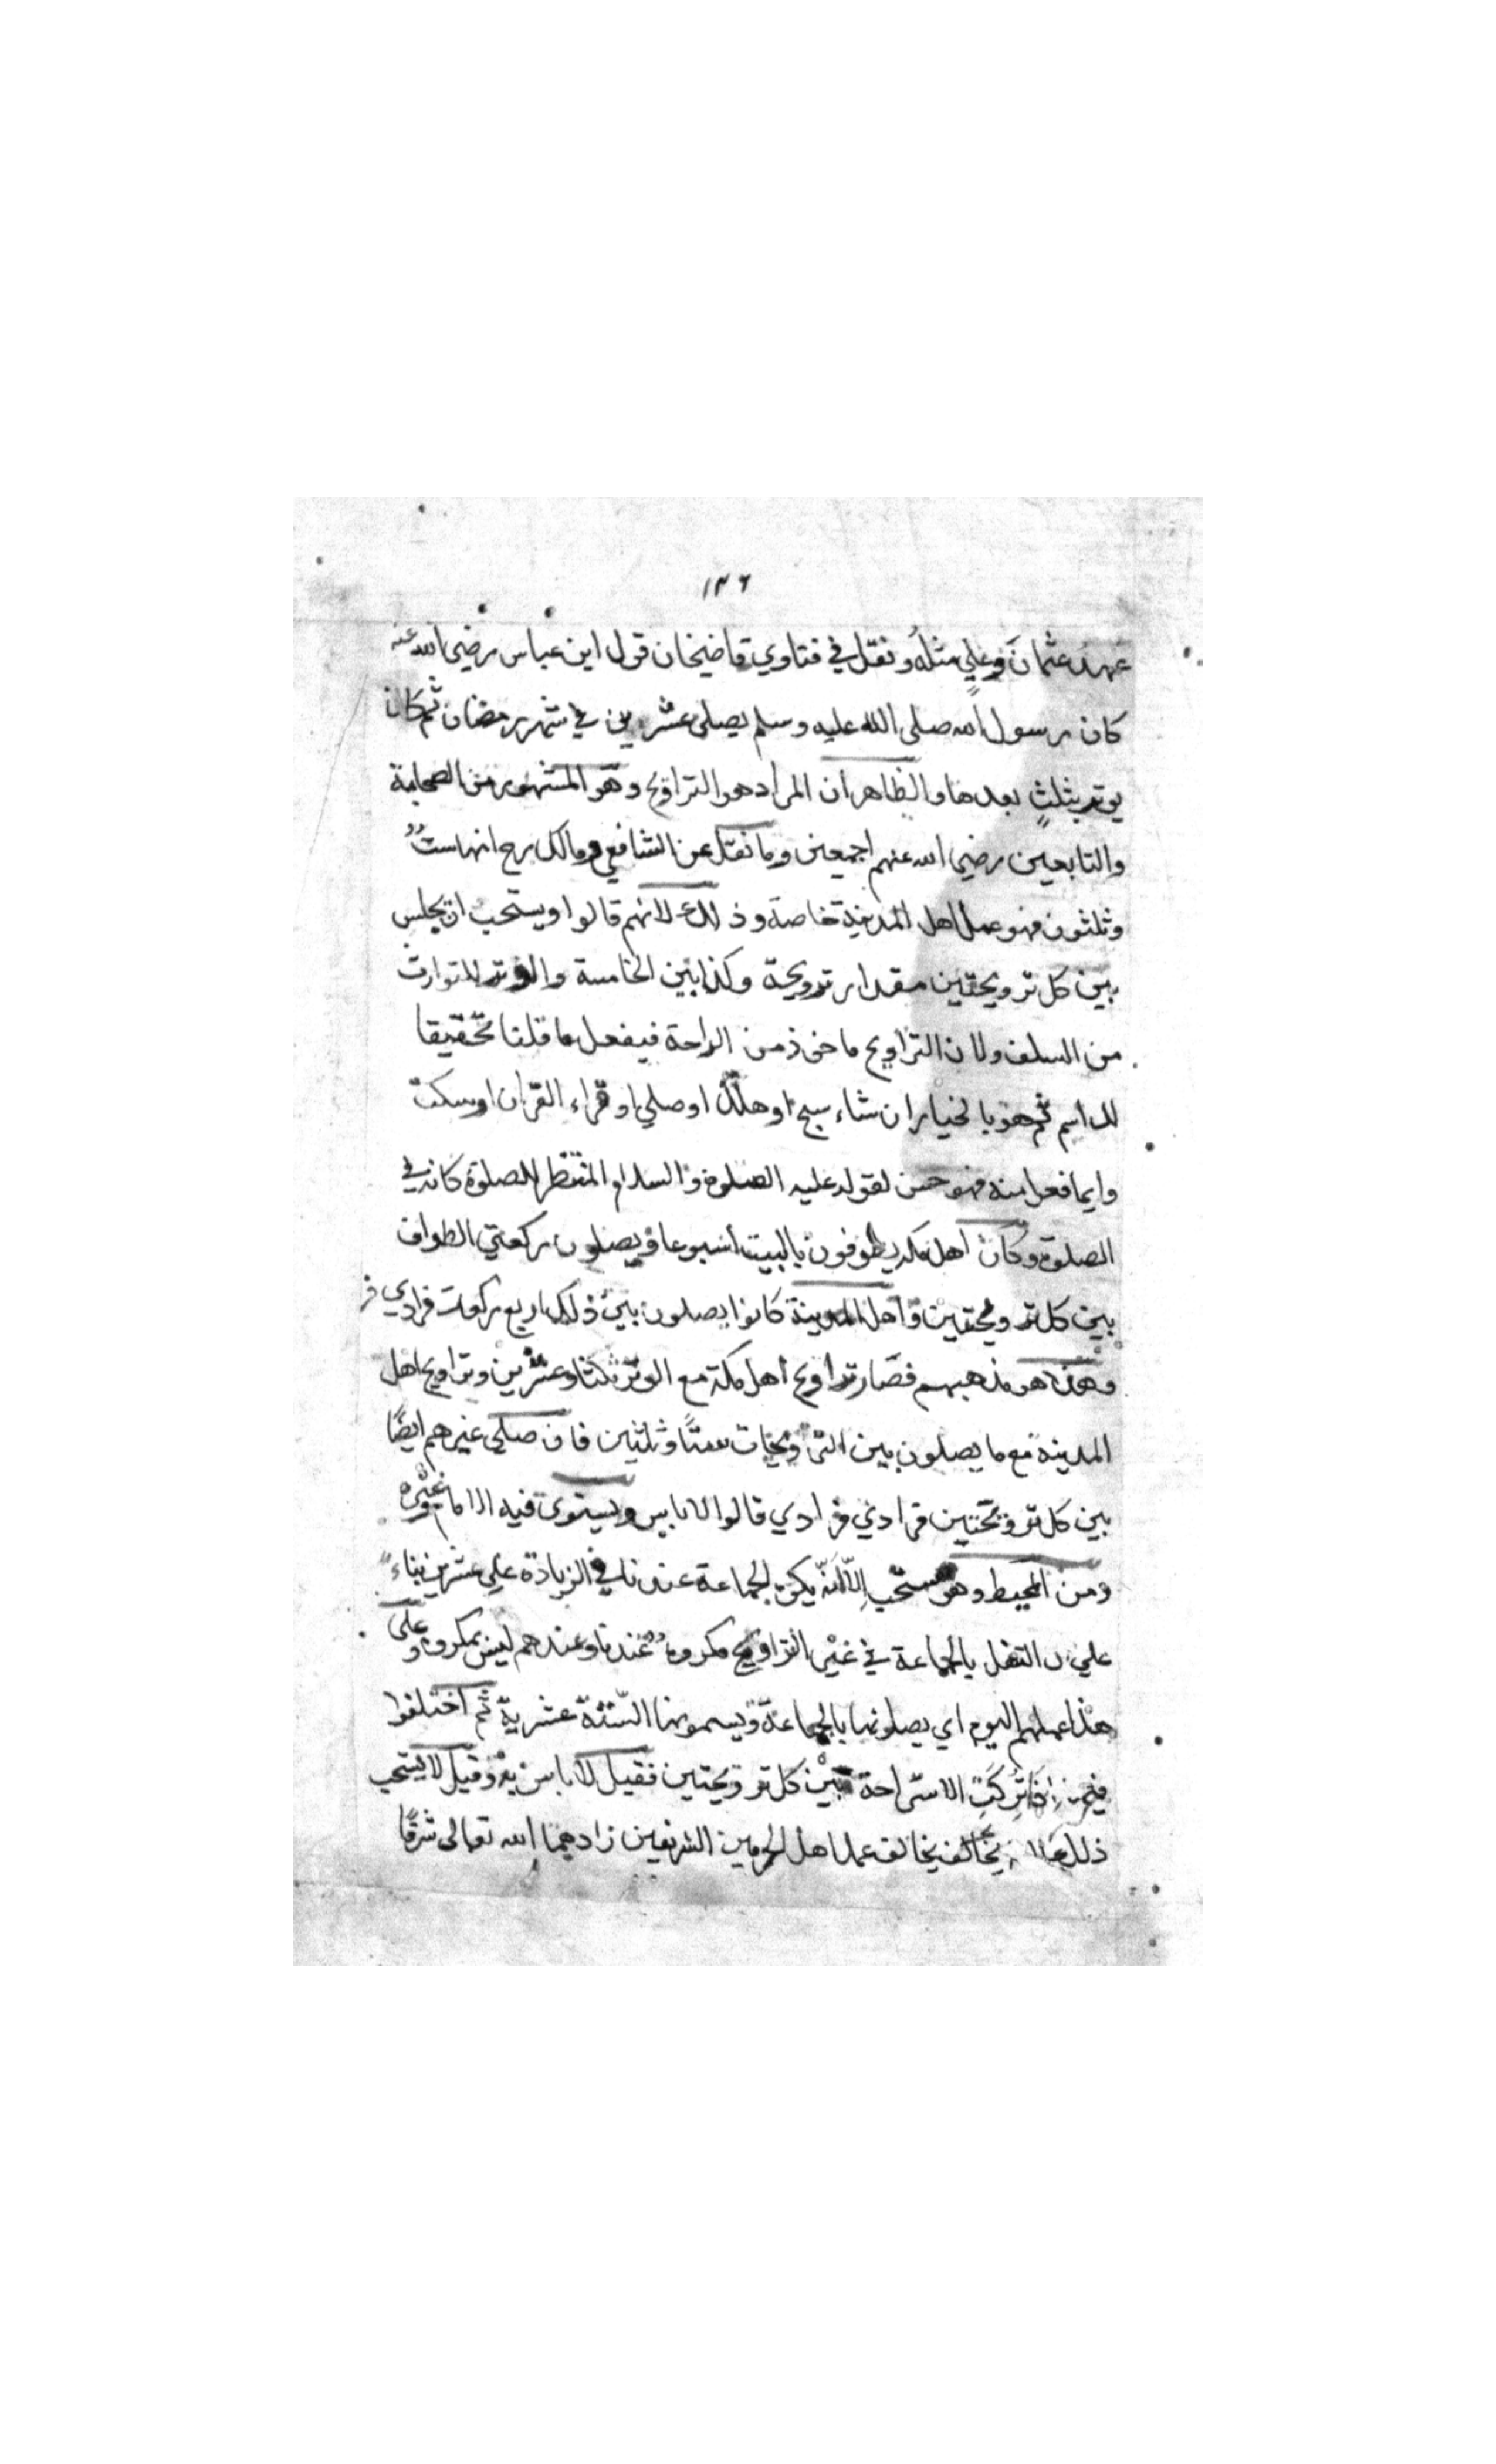 ١٣٦
عهد عثمان وعلي مثله ونقل في فتاوي قاضيخان قول ابن عباس رضي الله عنه
كان رسول الله صلى الله عليه وسلم يصلي عشرين في شهر رمضان ثم كان
يوتر بثلثٍ بعدها والظاهر ان المراد هو التراويح وهو المشهور من الصحابة
والتابعين رضي الله عنهم اجمعين وما نقل عن الشافعي ومالك رح انها ستٌ
وثلثون فهو عمل اهل المدينة خاصة وذلك لانهم قالوا ويستحب ان يجلس
بين كل ترويحتين مقدار ترويحة وكذا بين الخامسة والوتر للتوارث
من السلف ولان التراويح ماخوذ من الراحة فيفعل ما قلنا تحقيقا
للاسم ثم هو بالخيار ان شاء سبح او هلّل او صلي او قراء القران او سكت
وايما فعل منه فهو حسن لقوله عليه الصلوة والسلام المنتظر للصلوة كانه في
الصلوة وكان اهل مكة يطوفون بالبيت اسبوعا ويصلون ركعتي الطواف
بين كل ترويحتين واهل المدينة كانوا يصلون بين ذلك اربع ركعات فرادي
وهذا هو مذهبهم فصار تراويح اهل مكة مع الوتر ثلثا وعشرين وتراويح اهل
المدينة مع ما يصلون بين الترويحات ستًا وثلثين فان صلى غيرهم ايضًا
بين كل ترويحتين فرادي فرادي قالوا لا باس ويستوي فيه الامام وغيره
ومن المحيط وهو مستحب إلّا أنّه يكره الجماعة عندنا في الزيادة علي عشرين بناءً
علي ان التنفل بالجماعة في غير التراويح مكروه عندنا وعندهم ليس بمكروه وعلى
هذا عملهم اليوم اي يصلونها بالجماعة ويسمونها الستة عشرية ثم اختلفوا
فيمن إذا تركت الاستراحة بين كل ترويحتين فقيل لا باس به وقيل لا يستحب
ذلك يخالف عمل اهل الحرمين الشريفين زادهما الله تعالى شرفًا